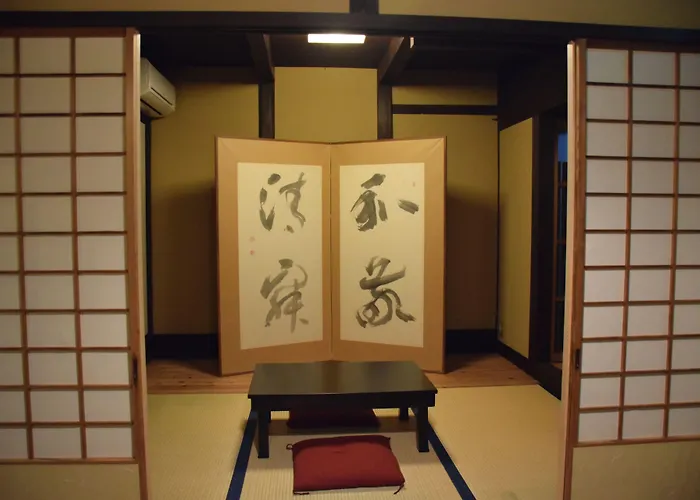 和敬
清寂